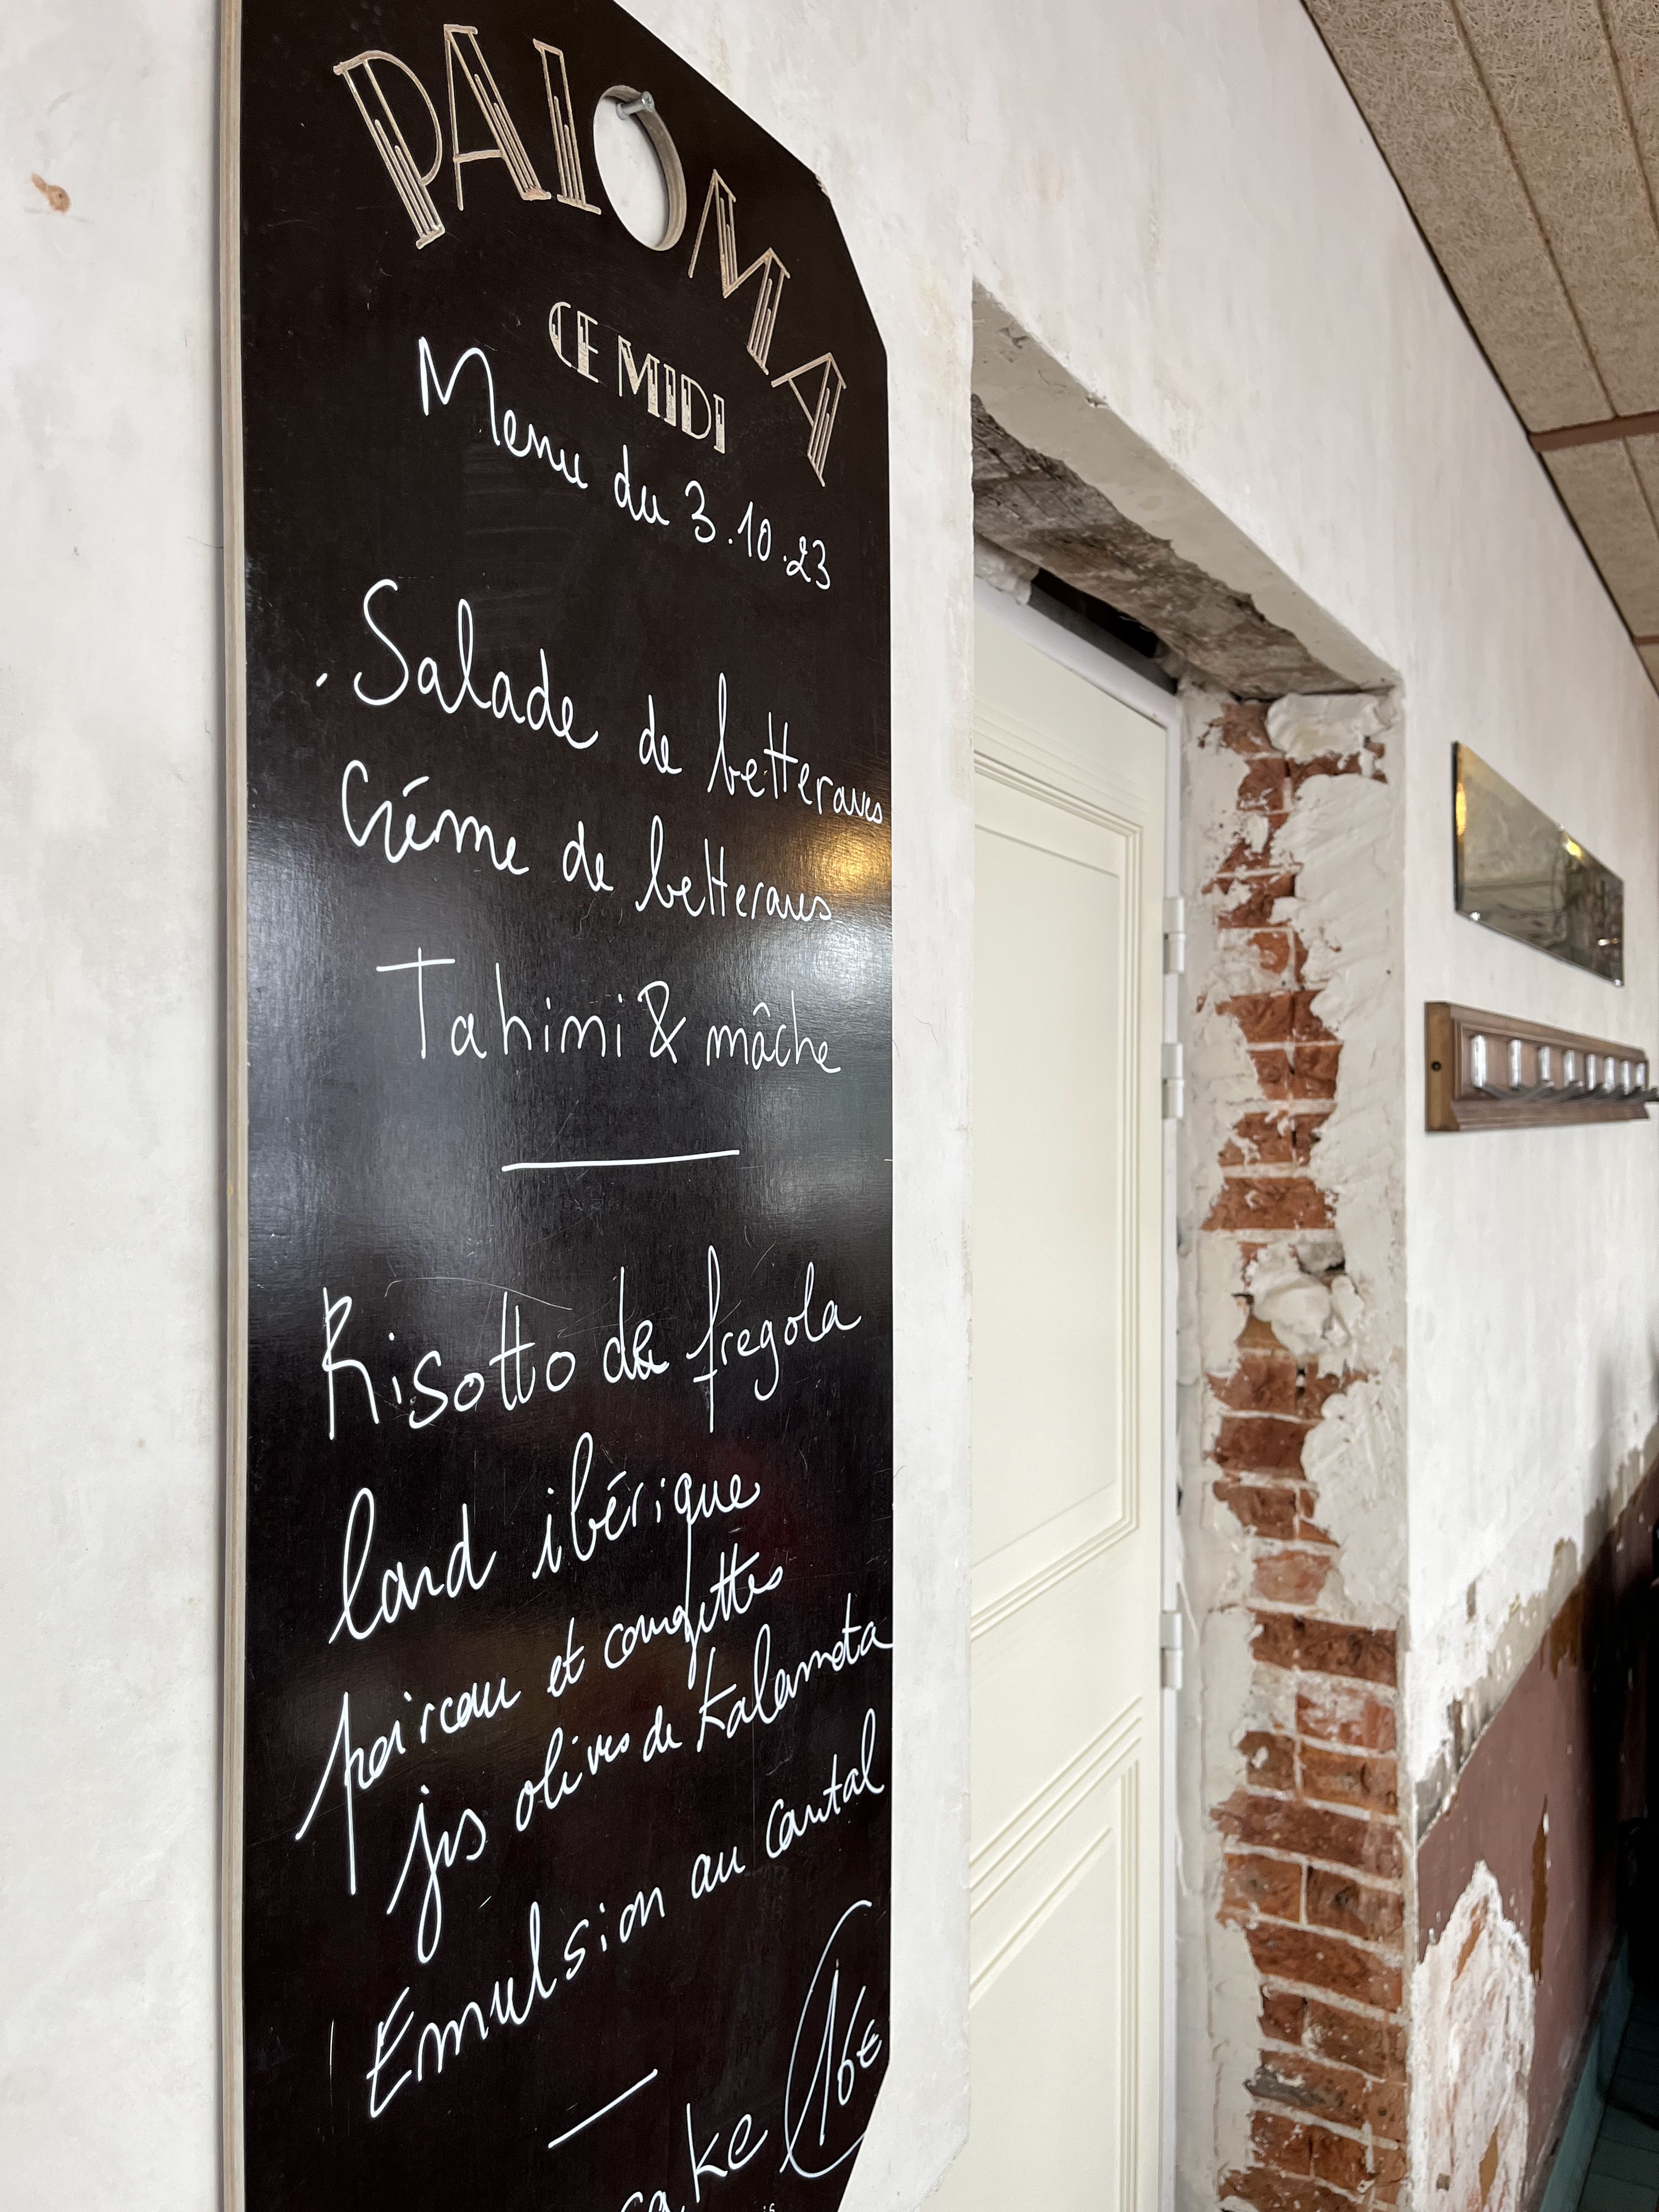 PALOMA
CE MIDI
Menu du 3.10.23
. Salade de betteraves
Crème de betteraves
Tahini & mâche
Risotto de fregola
lard ibérique
poireau et courgettes
jus olives de Kalamata
Émulsion au cantal
16€